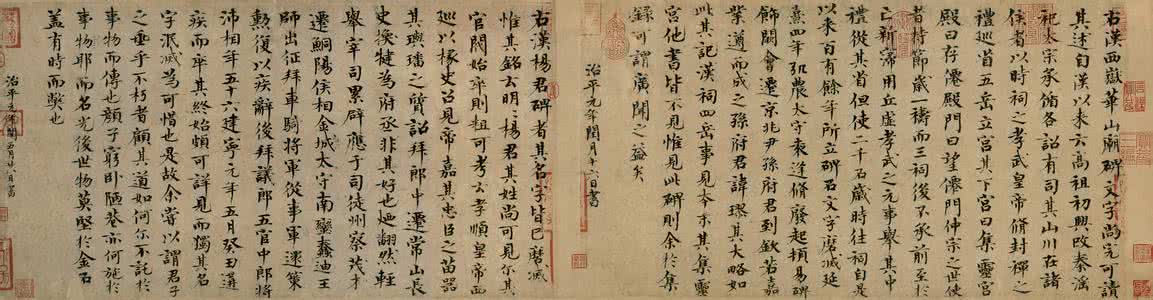 右漢西嶽華山廟碑文字尚完可讀
其述自漢以來云高祖初興改秦淫
祀太宗承循各詔有司其山川在諸
侯者以時祠之孝武皇帝脩封禪之
禮巡省五岳立宮其下宮曰集靈宮
殿曰存僊殿門曰望僊門仲宗之世使
者持節歲一禱而三祠後不承前至於
亡新寖用丘虛孝武之元事舉其中
禮從其省但使二千石歲時往祠自是
以來百有餘年所立碑石文字磨滅延
熹四年弘農太守袁逢脩廢起頓易碑
飾闕會遷京兆尹孫府君到欽若嘉
業遵而成之孫府君諱璆其大略如
此其記漢祠四岳事見本末其集靈
宮他書皆不見惟見此碑則余於集
錄可謂廣聞之益矣
治平元年閏月十六日書
右漢楊君碑者其名字皆已磨滅
惟其銘云明明楊君其姓尚可見尔其
官閥始卒則粗可考云孝順皇帝西
巡以掾史召見帝嘉其忠臣之苗器
其璵璠之質詔拜郎中遷常山長
史換犍為府丞非其好也迺翻然輕
舉宰司累辟應于司徒州察茂才
遷鮦陽侯相金城太守南蠻蠢迪王
師出征拜車騎將軍從事軍還策
勳復以疾辭後拜議郎五官中郎將
沛相年五十六建寧元年五月癸丑遘
疾而卒其終始頗可詳見而獨其名
字泯滅為可惜也是故余嘗以謂君子
之垂乎不朽者顧其道如何尔不託於
事物而傳也顏子窮臥陋巷亦何施於
事物耶而名光後世物莫堅於金石
蓋有時而弊也
治平元年閏五月廿八日書